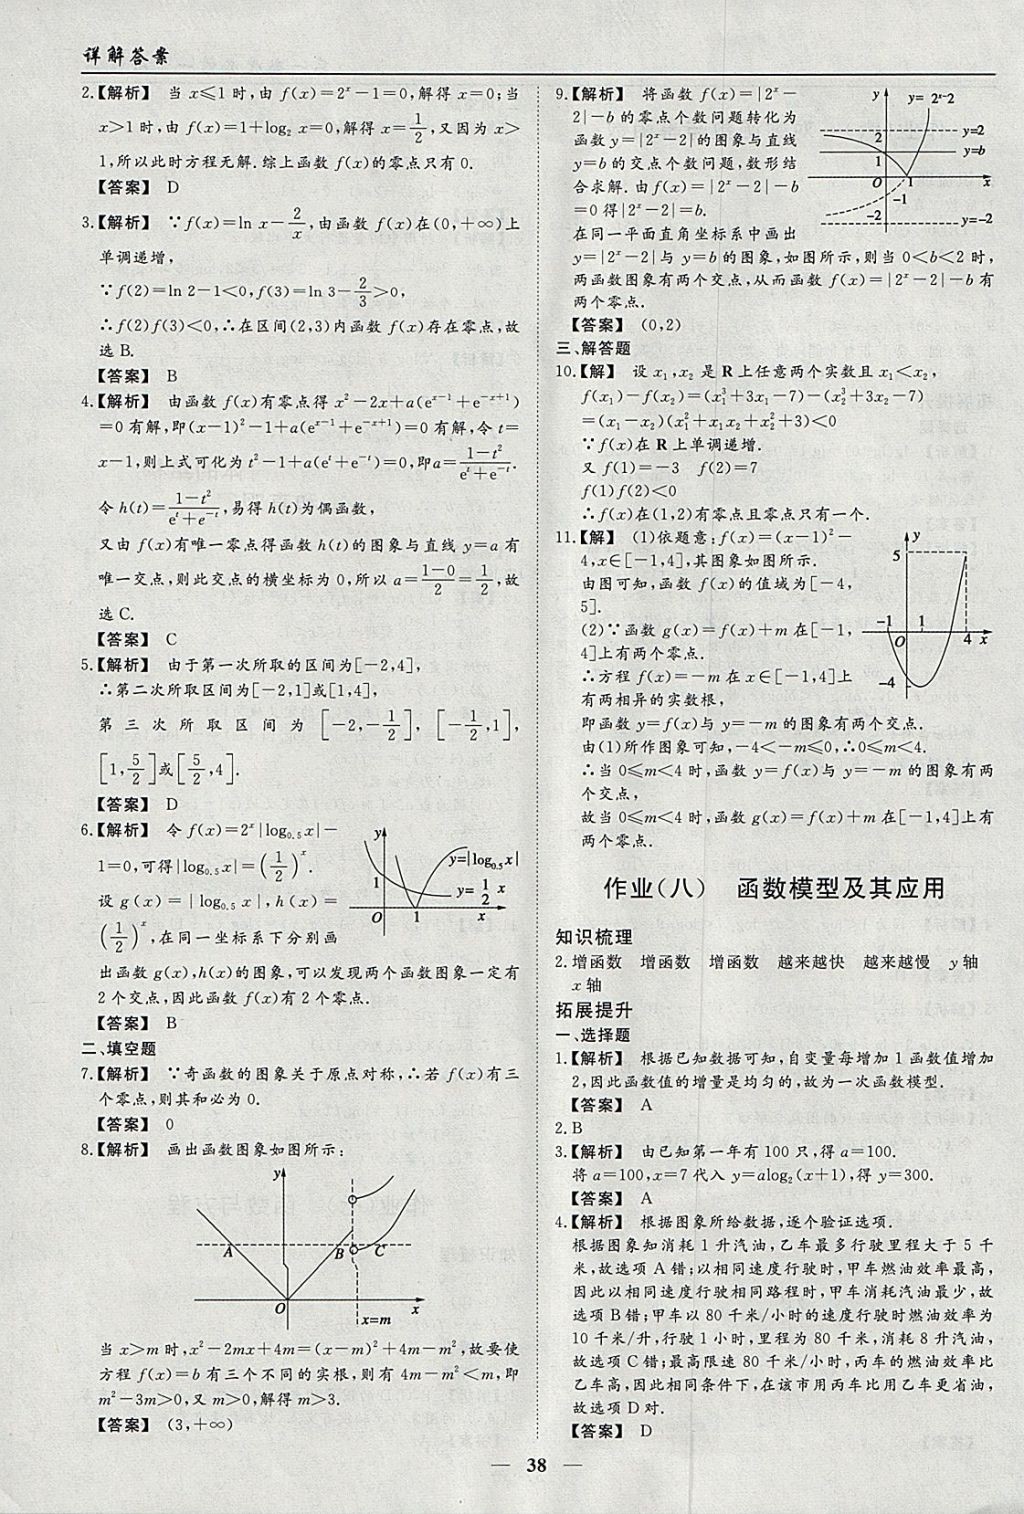 详解答案
2.【解析】 当 x≤1 时,由 f(x)=2ˣ-1=0,解得 x=0;当
x>1 时,由 f(x)=1+log₂ x=0,解得 x=1/2,又因为 x>
1,所以此时方程无解.综上函数 f(x)的零点只有 0.
【答案】 D
3.【解析】 ∵f(x)=ln x-2/x,由函数 f(x)在(0,+∞)上
单调递增,
∵f(2)=ln 2-1<0,f(3)=ln 3-2/3>0,
∴f(2)f(3)<0,∴在区间(2,3)内函数 f(x)存在零点,故
选 B.
【答案】 B
4.【解析】 由函数 f(x)有零点得 x²-2x+a(eˣ⁻¹+e⁻ˣ⁺¹)
=0 有解,即(x-1)²-1+a(eˣ⁻¹+e⁻ˣ⁺¹)=0 有解,令 t=
x-1,则上式可化为 t²-1+a(eᵗ+e⁻ᵗ)=0,即a=(1-t²)/(eᵗ+e⁻ᵗ).
令 h(t)=(1-t²)/(eᵗ+e⁻ᵗ),易得 h(t)为偶函数,
又由 f(x)有唯一零点得函数 h(t)的图象与直线 y=a 有
唯一交点,则此交点的横坐标为 0,所以 a=(1-0)/2=1/2,故
选 C.
【答案】 C
5.【解析】 由于第一次所取的区间为[-2,4],
∴第二次所取区间为[-2,1]或[1,4],
第三次所取区间为[-2,-1/2],[-1/2,1],
[1,5/2]或[5/2,4].
【答案】 D
6.【解析】 令 f(x)=2ˣ|log₀.₅x|-
1=0,可得|log₀.₅x|=(1/2)ˣ.
设 g(x)=|log₀.₅x|,h(x)=
(1/2)ˣ,在同一坐标系下分别画
出函数 g(x),h(x)的图象,可以发现两个函数图象一定有
2 个交点,因此函数 f(x)有 2 个零点.
y
y=|log₀.₅x|
1
y=1/2 x
O
1
x
【答案】 B
二、填空题
7.【解析】 ∵奇函数的图象关于原点对称,∴若 f(x)有三
个零点,则其和必为 0.
【答案】 0
8.【解析】 画出函数图象如图所示:
y
A
B
C
O
x
x=m
当 x>m 时,x²-2mx+4m=(x-m)²+4m-m²,故要使
方程 f(x)=b 有三个不同的实根,则有 4m-m²<m,即
m²-3m>0,又 m>0,解得 m>3.
【答案】 (3,+∞)
9.【解析】 将函数 f(x)=|2ˣ-
2|-b 的零点个数问题转化为
函数 y=|2ˣ-2|的图象与直线
y=b 的交点个数问题,数形结
合求解.由 f(x)=|2ˣ-2|-b
=0 得|2ˣ-2|=b.
在同一平面直角坐标系中画出
y=|2ˣ-2|与 y=b 的图象,如图所示,则当 0<b<2 时,
两函数图象有两个交点,从而函数 f(x)=|2ˣ-2|-b 有
两个零点.
y
y= 2ˣ-2
2
y=2
y=b
1
O
1
x
-1
-2
y=-2
【答案】 (0,2)
三、解答题
10.【解】 设 x₁,x₂ 是 R 上任意两个实数且 x₁<x₂,
f(x₁)-f(x₂)=(x₁³+3x₁-7)-(x₂³+3x₂-7)
=(x₁-x₂)(x₁²+x₁x₂+x₂²+3)<0
∵f(x)在 R 上单调递增.
又 f(1)=-3 f(2)=7
f(1)f(2)<0
∴f(x)在(1,2)有零点且零点只有一个.
11.【解】 (1)依题意:f(x)=(x-1)²-
4,x∈[-1,4],其图象如图所示.
由图可知,函数 f(x)的值域为[-4,
5].
(2)∵函数 g(x)=f(x)+m 在[-1,
4]上有两个零点.
∴方程 f(x)=-m 在 x∈[-1,4]上
有两相异的实数根,
即函数 y=f(x)与 y=-m 的图象有两个交点.
由(1)所作图象可知,-4<-m≤0,∴0≤m<4.
∴当 0≤m<4 时,函数 y=f(x)与 y=-m 的图象有两
个交点,
故当 0≤m<4 时,函数 g(x)=f(x)+m 在[-1,4]上有
两个零点.
y
5
-1
1
O
4
x
-4
作业(八) 函数模型及其应用
知识梳理
2.增函数 增函数 增函数 越来越快 越来越慢 y 轴
x 轴
拓展提升
一、选择题
1.【解析】 根据已知数据可知,自变量每增加 1 函数值增加
2,因此函数值的增量是均匀的,故为一次函数模型.
【答案】 A
2.B
3.【解析】 由已知第一年有 100 只,得 a=100.
将 a=100,x=7 代入 y=alog₂(x+1),得 y=300.
【答案】 A
4.【解析】 根据图象所给数据,逐个验证选项.
根据图象知消耗 1 升汽油,乙车最多行驶里程大于 5 千
米,故选项 A 错;以相同速度行驶时,甲车燃油效率最高,
因此以相同速度行驶相同路程时,甲车消耗汽油最少,故
选项 B 错;甲车以 80 千米/小时的速度行驶时燃油效率为
10 千米/升,行驶 1 小时,里程为 80 千米,消耗 8 升汽油,
故选项 C 错;最高限速 80 千米/小时,丙车的燃油效率比
乙车高,因此相同条件下,在该市用丙车比用乙车更省油,
故选项 D 对.
【答案】 D
— 38 —